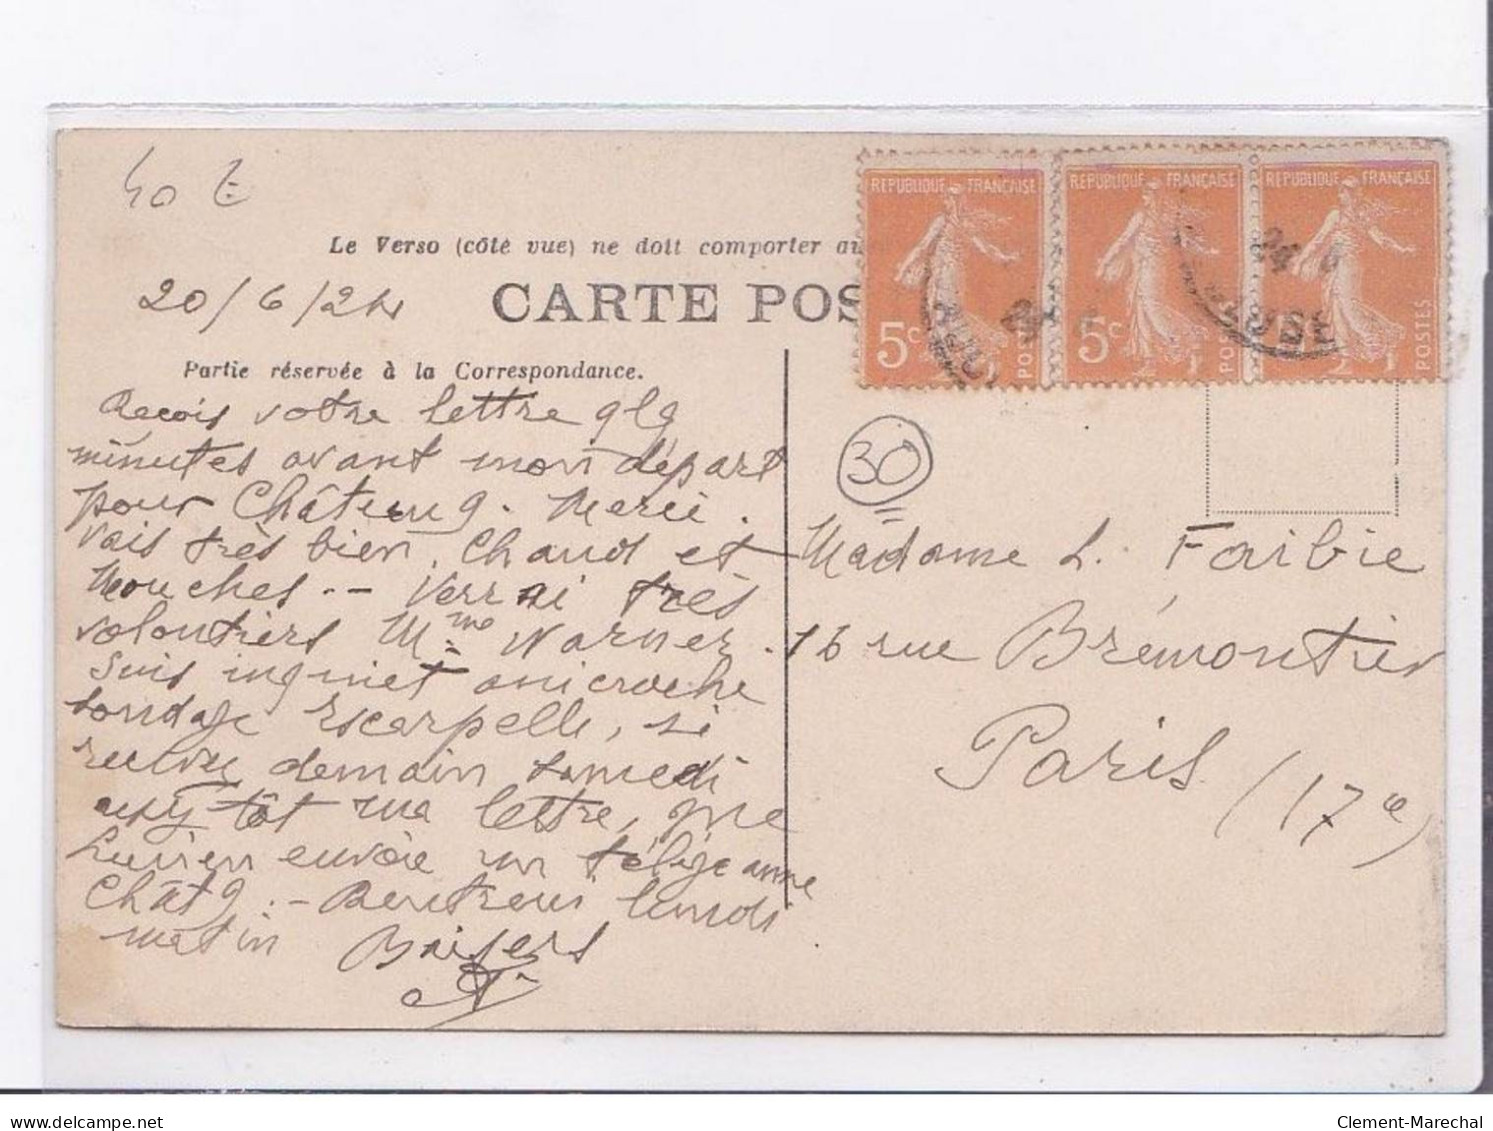 40 E
Le Verso (côté vue) ne doit comporter au
20/6/24
CARTE POS
Partie réservée à la Correspondance.
Reçois votre lettre qlq
minutes avant mon départ
pour Châtung. Merci.
Vais très bien, Chaud et
Mouches.-- Verrai très
volontiers Mme Warner.
Suis inquiet anicroche
sondage Escarpelle, si
demain samedi
tôt ma lettre, que
Lucien envoie un télége anne
Châtg.- Rentrerai lundi
matin Baisers
REPUBLIQUE FRANÇAISE
5c
POSTES
REPUBLIQUE FRANÇAISE
5c
POSTES
REPUBLIQUE FRANÇAISE
POSTES
30
Madame L. Faibie
16 rue Brémontier
Paris (17e)
delcampe.net
Clement-Marechal